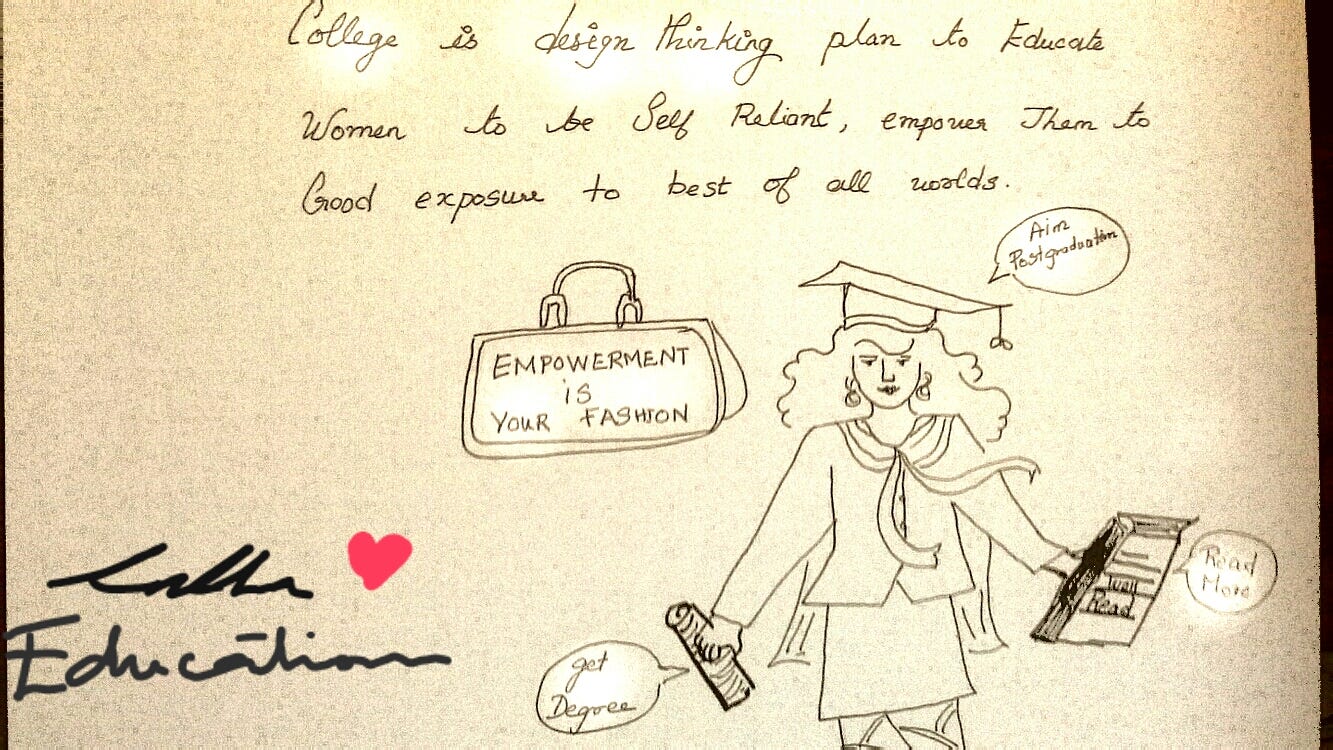 College is design thinking plan to Educate
Women to be Self Reliant, empower Them to
Good exposure to best of all worlds.
Aim
Postgraduation
EMPOWERMENT
is
YOUR FASHION
Read
More
Read
get
Degree
Education